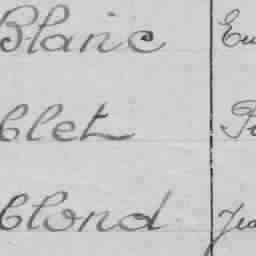 Blanc Eu
blet Pi
blond Jea